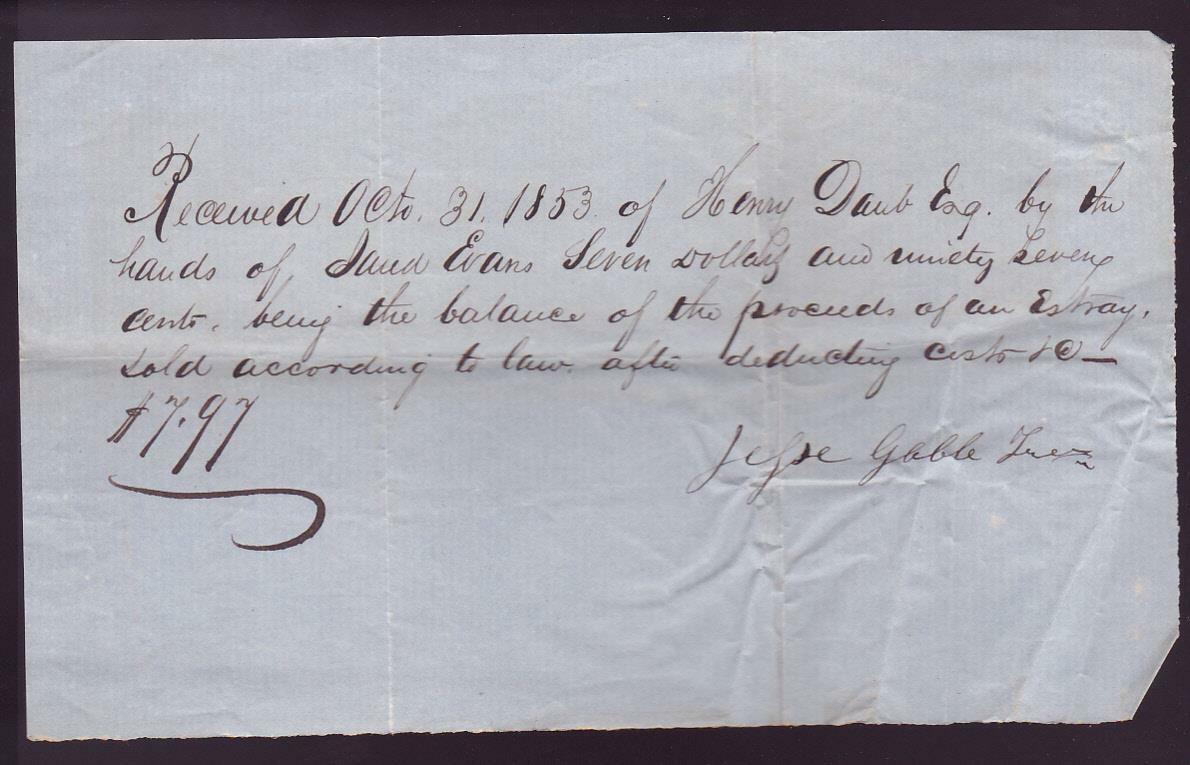 Received Octo. 31. 1853 of Henry Daub Esq. by the
hands of David Evans Seven Dollars and ninety seven
cents. being the balance of the proceeds of an Estray.
sold according to law. after deducting costs &c —
$7.97
Jesse Gable Treas